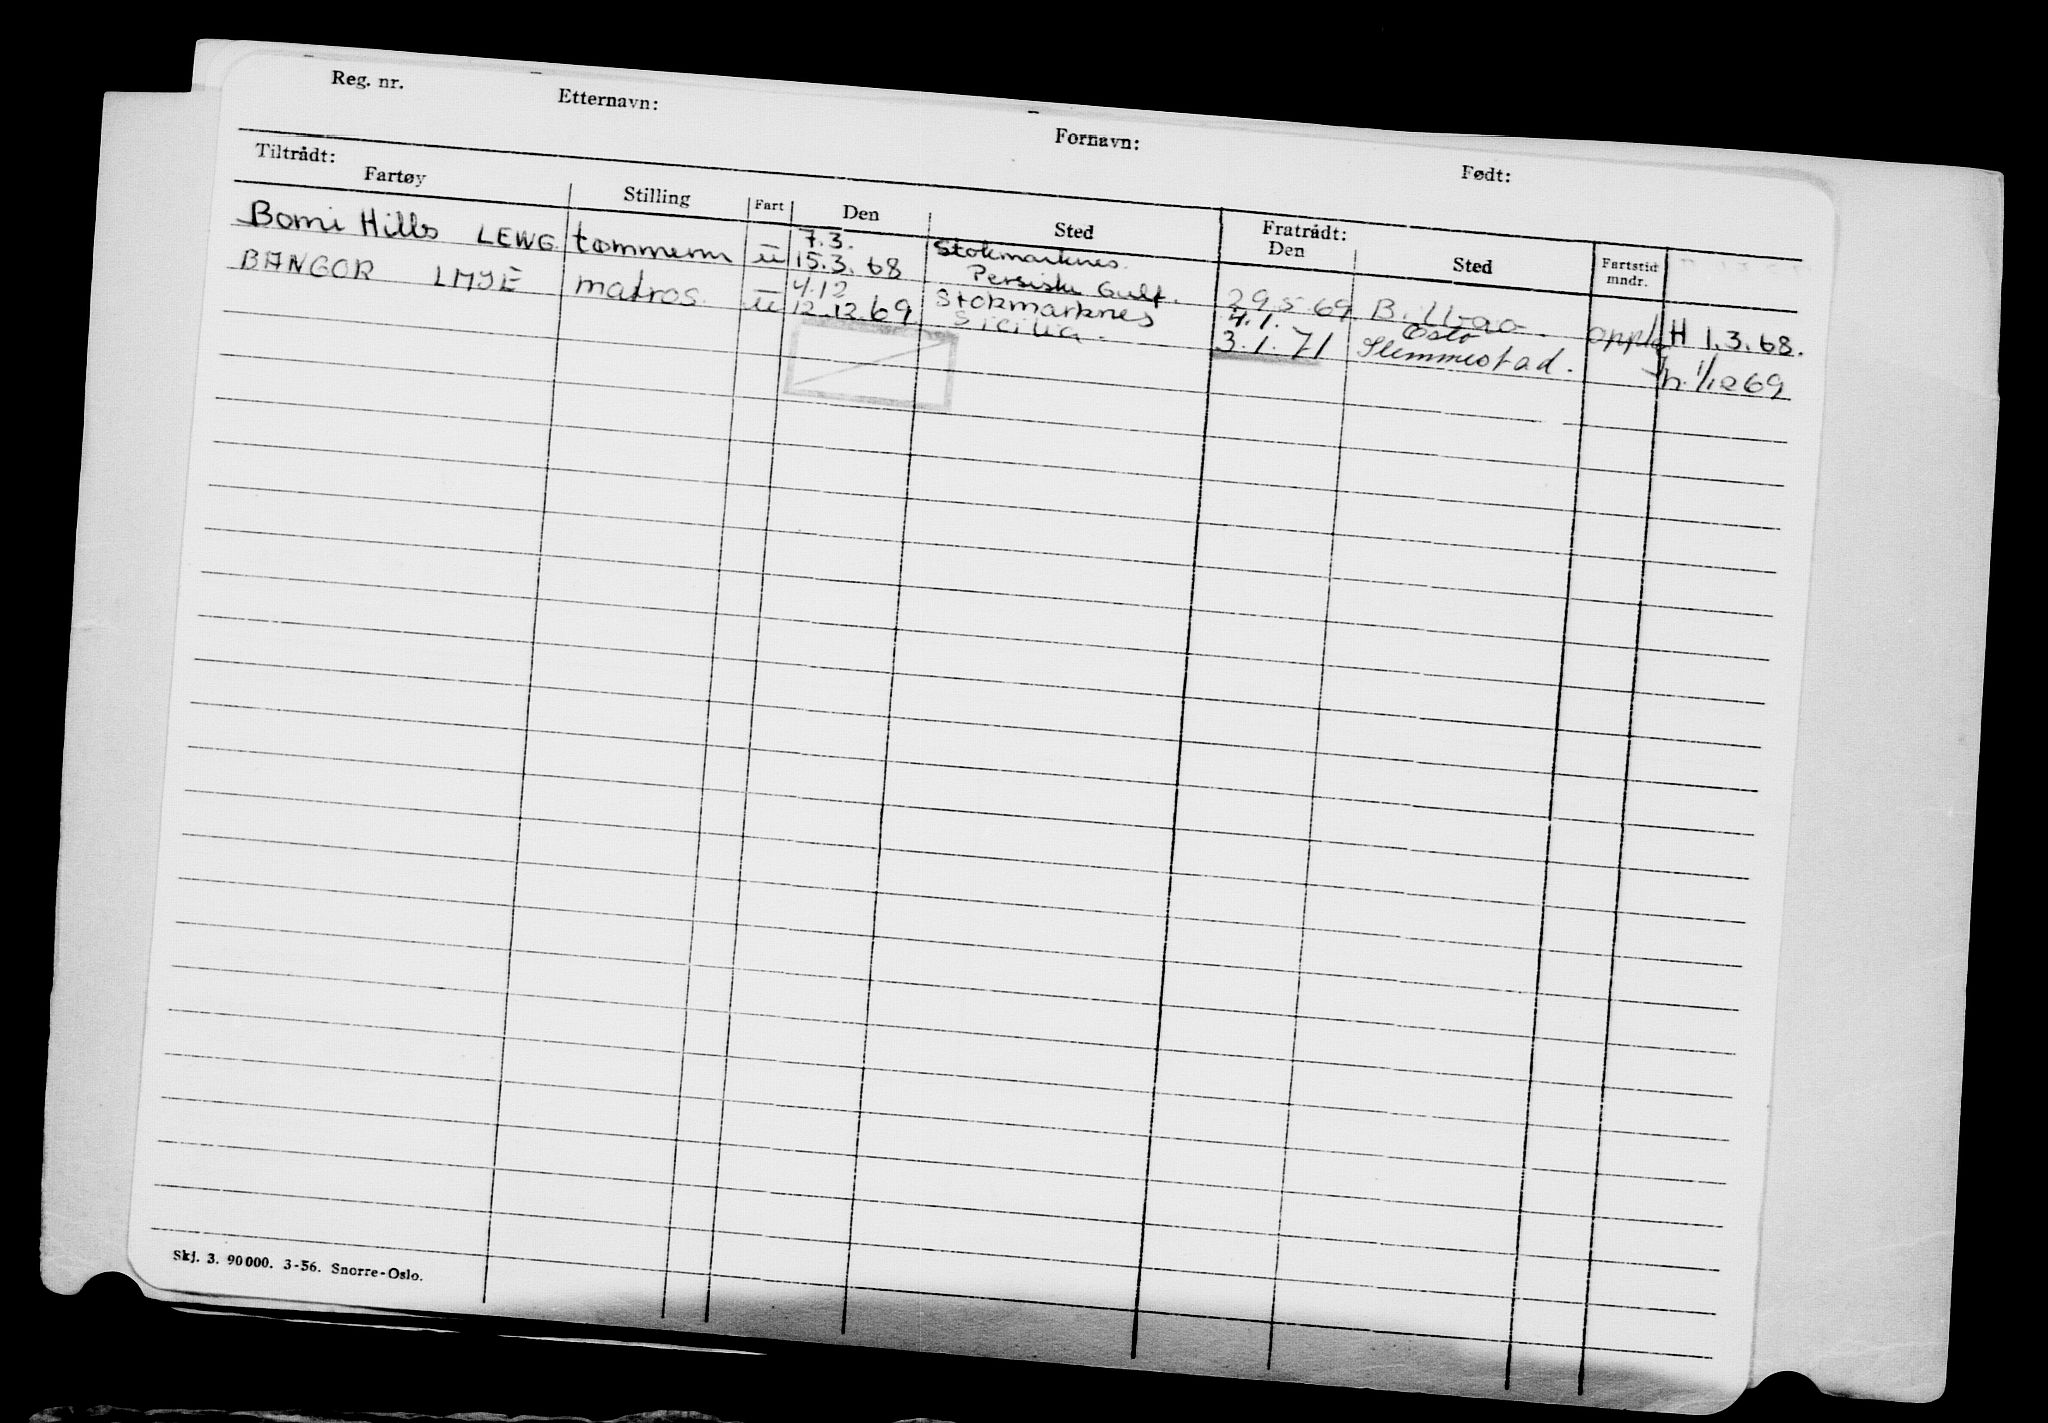 Reg. nr. Etternavn: Fornavn: Født:
Tiltrådt: Fratrådt:
Fartøy Stilling Fart Den Sted Den Sted Fartstid mndr.
7.3. Stokmarknes.
Bomi Hills LEWG tømmerm u 15.3.68 Persiske Gulf. 29.5 69 Bilbao oppl H 1.3.68.
4.12 Stokmarknes 4.1. Oslo
BANGOR matros. u 12.12.69 Sicilia. 3.1.71 Slemmestad. h. 1/12 69
Skj. 3. 90000. 3-56. Snorre-Oslo.